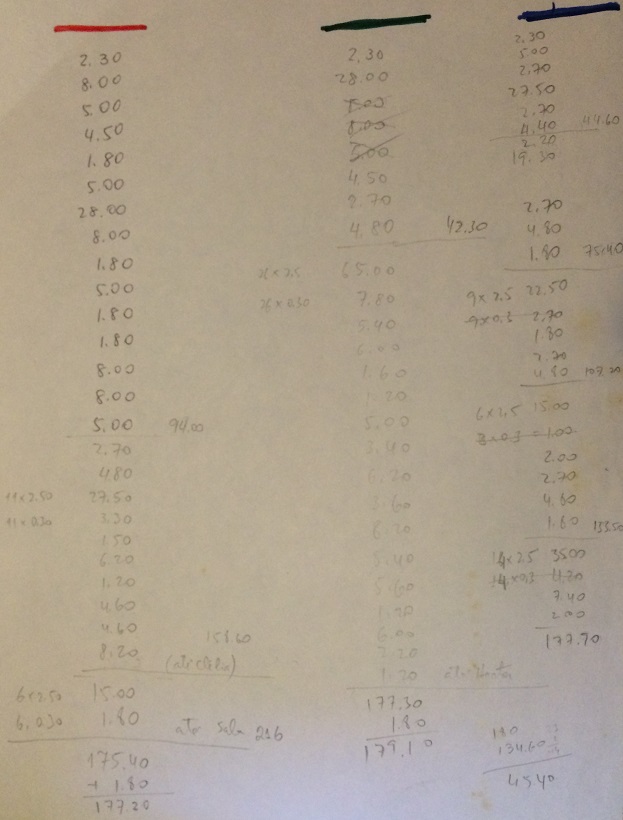 2.30
8.00
5.00
4.50
1.80
5.00
28.00
8.00
1.80
5.00
1.80
1.80
8.00
8.00
5.00 94.00
2.70
4.80
11x2.50 27.50
11x0.30 3.30
1.50
6.20
1.20
4.60
4.60 158.60
8.20
6x2.50 15.00
6x0.30 1.80 até sala 216
175.40
+ 1.80
177.20
2.30
28.00
8.00
5.00
4.50
2.70
4.80 42.30
26x2.5 65.00
26x0.30 7.80
5.40
6.00
1.60
1.20
5.00
3.40
6.20
3.60
8.20
5.40
5.60
6.00
7.20
1.20
177.30
1.80
179.10
2.30
5.00
2.70
27.50
2.70
4.40 44.60
2.20
19.30
2.70
4.80
1.80 75.40
9x2.5 22.50
9x0.3 2.70
1.80
4.80 107.20
6x2.5 15.00
3x0.3 = 1.00
2.00
2.70
4.80
1.60 133.50
14x2.5 35.00
14x0.3 4.20
2.00
177.70
180
134.60
45.40